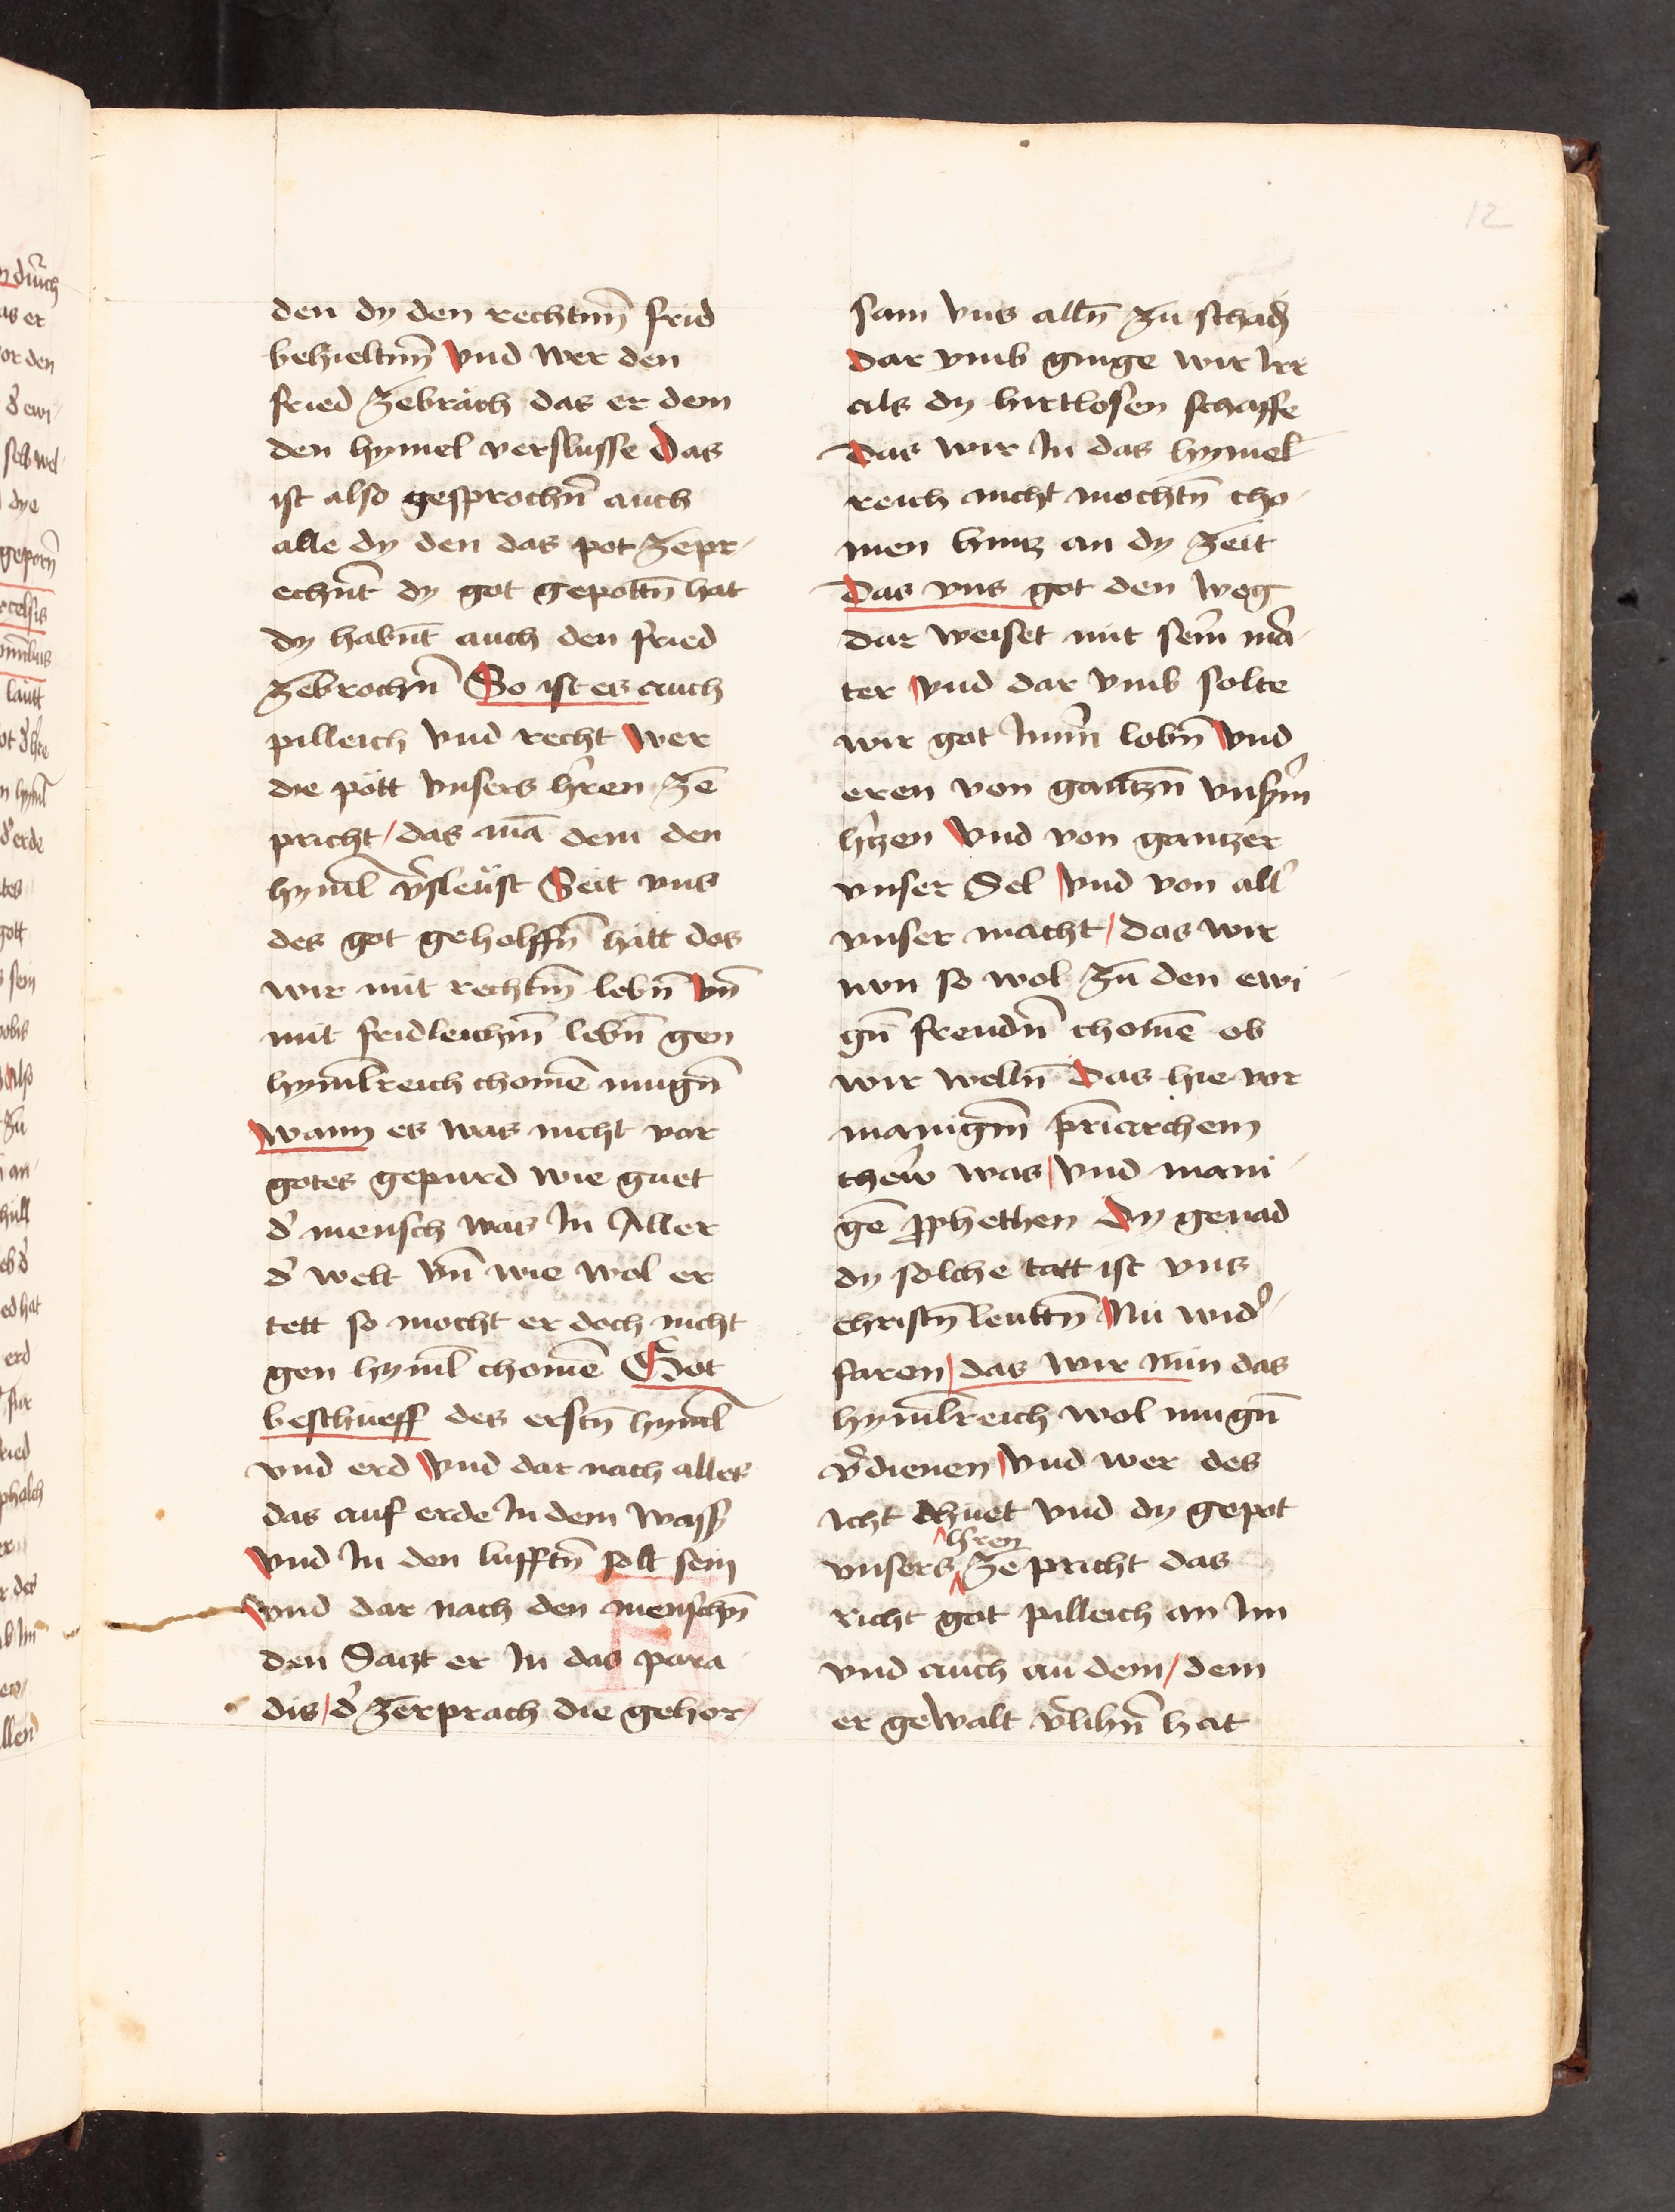 12
den dy den rechtñn frid
behieltñn vnd wer den
fried zebräch das er dem
den hymel verslusse Das
ist also gesprochñ auch
alle dy den das pot zepr
echñt dy got gepottñ hat
dy habñt auch den fried
zebrochñ So ist es auch
pilleich vnd recht wer
die pött vnsers hren ze
pricht / das mā dem den
hyml̄ v̓sleüst Seit vns
des got geholffñ hatt das
wir mit rechtm̄ lebñ vñ
mit fridleichm̄ lebñ gen
hyml̄reich chomē mugñ
wann es was nicht vor
gotes gepurd wie guet
d̓ mensch was In Aller
d̓ welt vñ wie wol er
tett so mocht er doch nicht
gen hyml̄ chomē Got
beschueff des erstñ hyml̄
vnd erd vnd dar nach alles
das auf erde In dem wass̓
vnd In den lufftñ solt sein
vnd dar nach den menschñ
den Satzt er In das para
dis / d̓ zerprach die gehor
sam vns allñ zu schadñ
dar vmb ginge wir Irr
als dy hirtlosen schaffe
Das wir In das hymel
reich nicht mochtñ cho
men hintz an dy zeit
Das vns got den weg
dar weiset mit seīm mā
ter vnd dar vmb solte
wir got Im̄m lobñ vnd
eren von gantzñ vns̓m
hr̓tzen vnd von gantzer
vnser Sel vnd von all̓
vnser macht / das wir
nvn so wol zu den ewi
gñ freudñ chomē ob
wir wellñ Das hie vor
manigm̄ pr̄iarchem
thew̓ was / vnd mani
gē p̄phethen Dy genad
dy solche tatt ist vns
christñ leuttñ Nü wid̓
faren / das wir nün das
hyml̄reich wol mugñ
v̓dienen vnd wer des
icht thuet vnd dy gepot
hren
vnsers ze pricht das
richt got pilleich an Im
vnd auch an dem / dem
er gewalt v̓lihñ hat